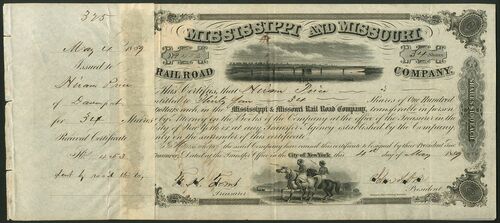 375
May 4 1859
Issued to
Hiram Price
of Davenport
for 34 Shares
Received Certificate
MISSISSIPPI AND MISSOURI
RAIL ROAD COMPANY.
This Certifies, that Hiram Price is
entitled to Thirty four 34 Shares of One Hundred
Dollars each in the Mississippi & Missouri Rail Road Company, transferable in person
or by Attorney on the Books of the Company at the office of the Treasurer in the
City of New York or at any Transfer Agency established by the Company
only on the surrender of this certificate.
the said Company have caused this certificate to be signed by their President and
Treasurer, Dated at the Transfer Office in the City of New York, this 4th day of May 1859
Treasurer
President